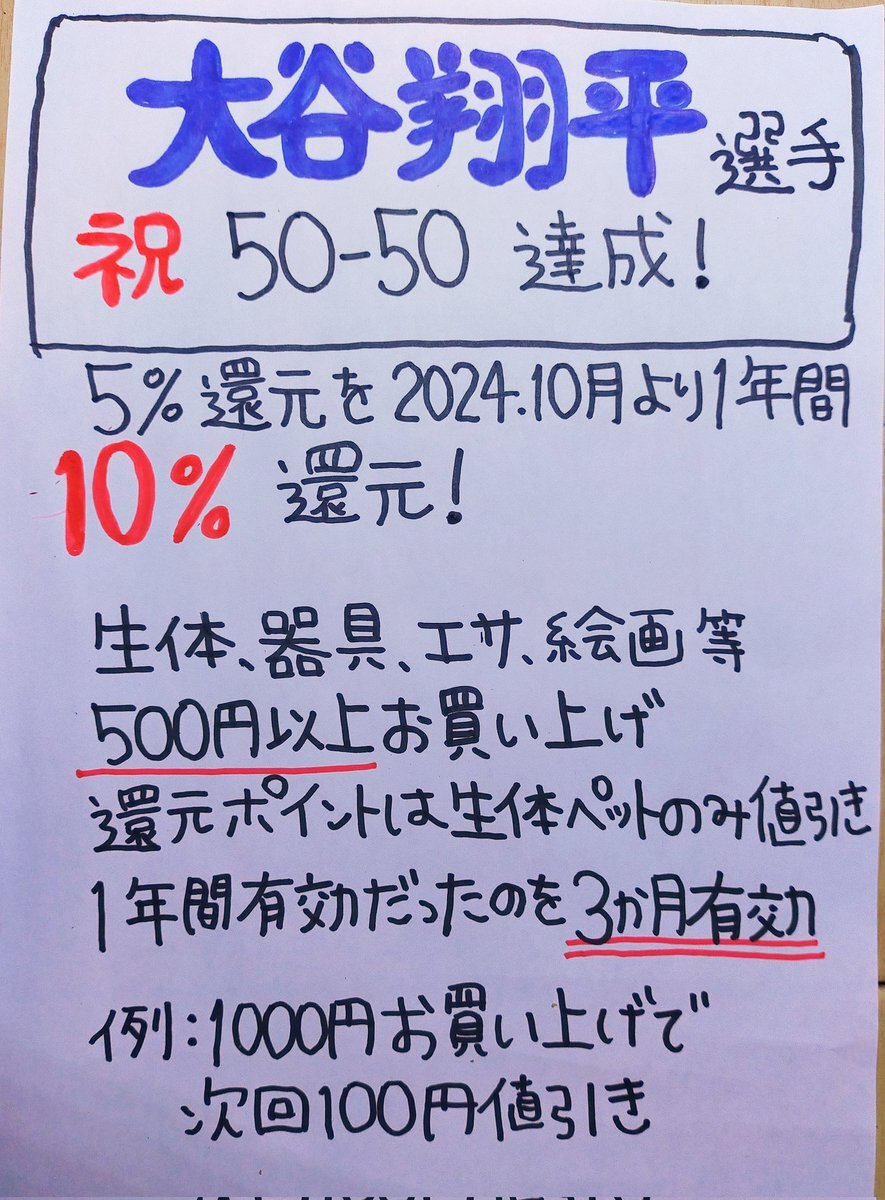 大谷翔平選手
祝 50-50 達成!
5%還元を2024.10月より1年間
10% 還元!
生体、器具、エサ、絵画等
500円以上お買い上げ
還元ポイントは生体ペットのみ値引き
1年間有効だったのを3か月有効
例:1000円お買い上げで
次回100円値引き